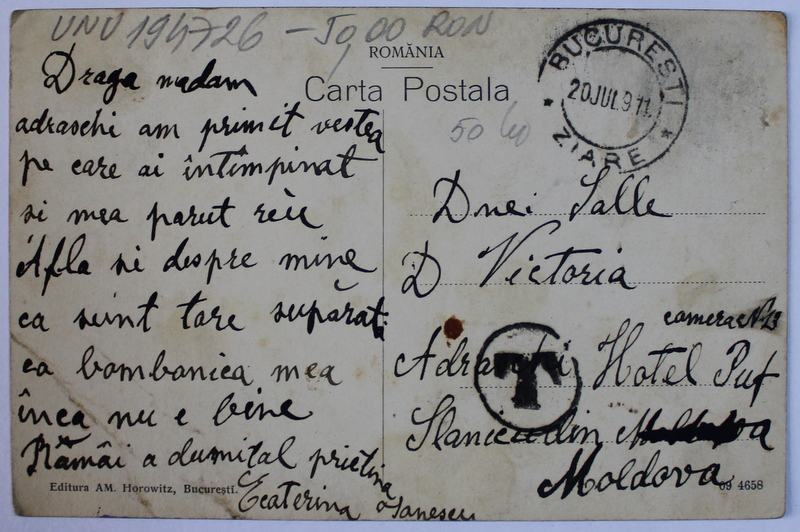 UNU 194726 - 50,00 RON
ROMÂNIA
Carta Postala
50 lei
BUCURESTI
20 JUL 911
ZIARE
Draga madam
adraschi am primit vestea
pe care ai întîmpinat
si mea parut rëu
Afla si despre mine
ca sunt tare supărat
ca bombonica mea
înca nu e bine
Rămâi a dumital prietina
Ecaterina
Dnei Salle
D Victoria
camera No 13
Adraschi Hotel Puf
Slanicu din
Moldova
T
Editura AM. Horowitz, Bucureşti.
09 4658